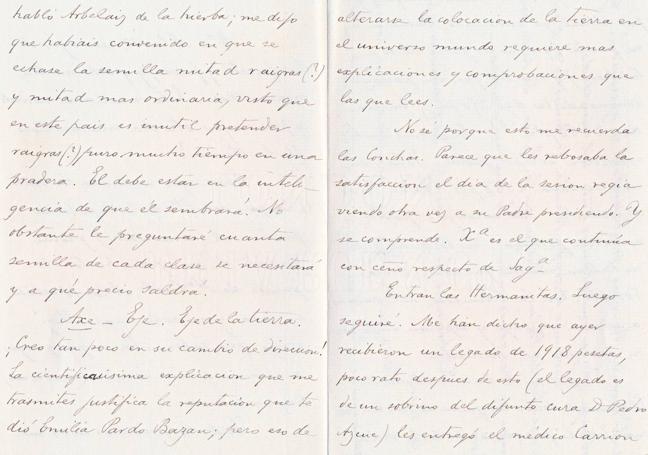 habló Arbelaiz de la hierba; me dijo
que habiais convenido en que se
echase la semilla mitad raigras (?)
y mitad mas ordinaria, visto que
en este pais es inutil pretender
raigras (?) puro mucho tiempo en una
pradera. El debe estar en la inteli-
gencia de que el sembrará. No
obstante le preguntaré cuanta
semilla de cada clase se necesitará
y a qué precio saldrá.
Axe — Eje. Eje de la tierra.
¡Creo tan poco en su cambio de direccion!
La cientificaisima explicacion que me
trasmites justifica la reputacion que te
dió Emilia Pardo Bazan; pero eso de
alterarse la colocacion de la tierra en
el universo mundo requiere mas
explicaciones y comprobaciones que
las que lees.
No sé porque esto me recuerda
las Conchas. Parece que les rebosaba la
satisfaccion el dia de la sesion regia
viendo otra vez a su Padre presidiendo. Y
se comprende. Xª es el que continúa
con ceño respecto de Sagª
Entran las Hermanitas. Luego
seguiré. Me han dicho que ayer
recibieron un legado de 1918 pesetas,
poco rato despues de esto (el legado es
de un sobrino del difunto cura D Pedro
Azcue) les entregó el médico Carrion